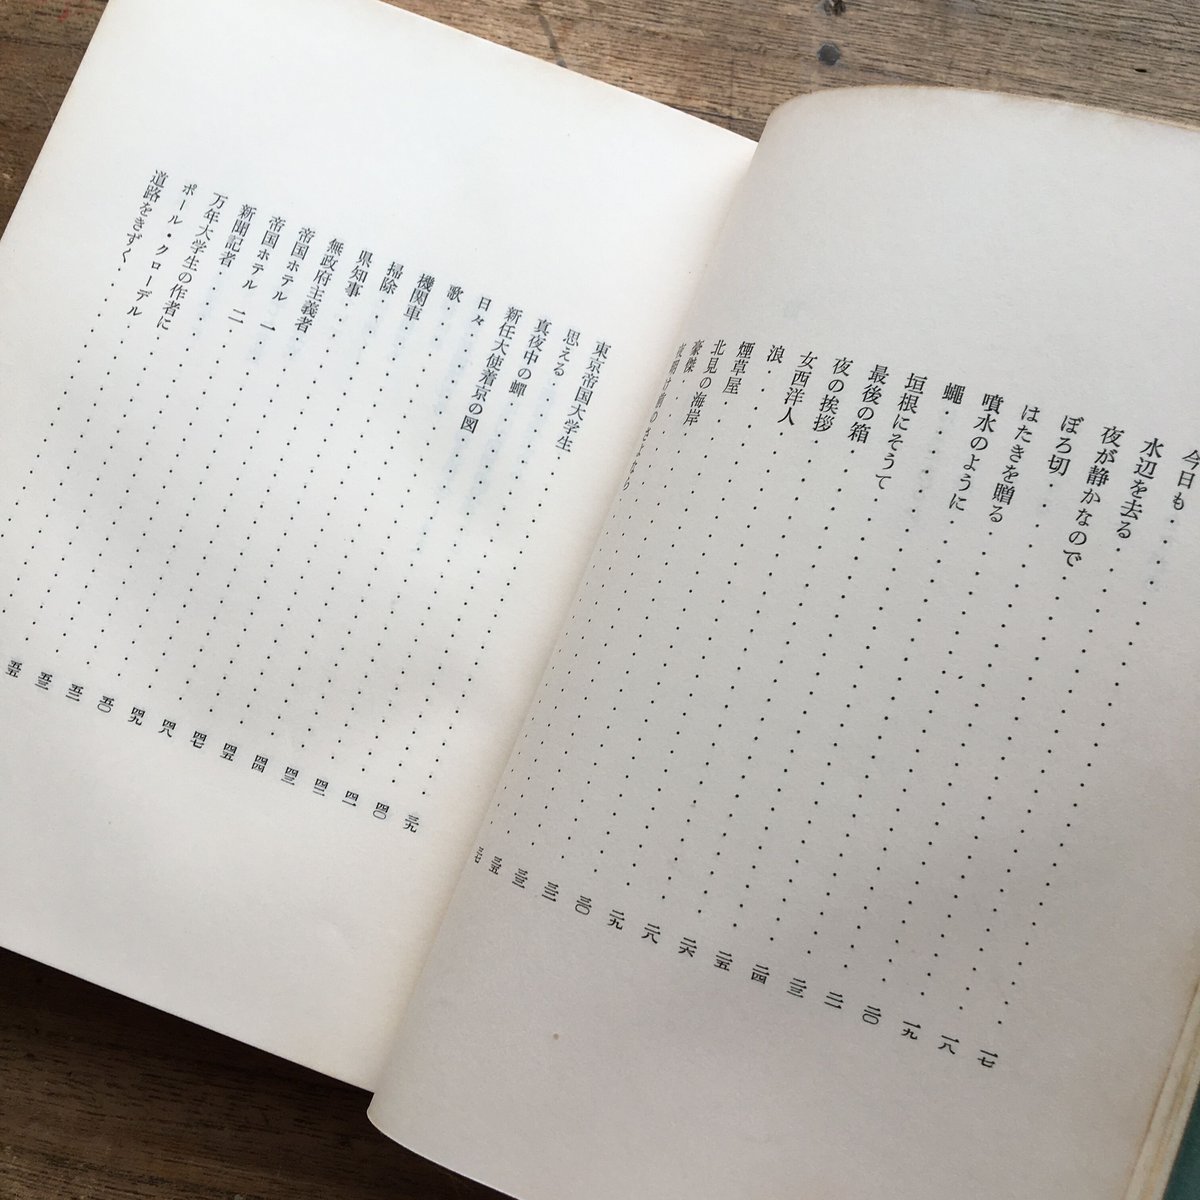 今日も……一七
水辺を去る……一八
夜が静かなので……一九
ぼろ切……二〇
はたきを贈る……二二
噴水のように……二三
蠅……二四
垣根にそうて……二五
最後の箱……二六
夜の挨拶……二八
女西洋人……二九
浪……三〇
煙草屋……三二
北見の海岸……三三
豪傑……三五
夜明け前のさよなら……三七
東京帝国大学生……三九
思える……四〇
真夜中の蟬……四一
新任大使着京の図……四二
日々……四三
歌……四四
機関車……四五
掃除……四七
県知事……四八
無政府主義者……四九
帝国ホテル 一……五〇
帝国ホテル 二……五二
新聞記者……五三
万年大学生の作者に……五五
ポール・クローデル……
道路をきずく……